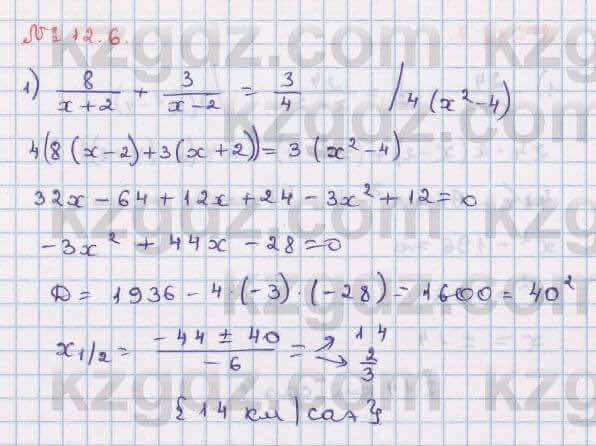 № 12.6.
1) 8/(x+2) + 3/(x-2) = 3/4 / 4(x²-4)
4(8(x-2)+3(x+2)) = 3(x²-4)
32x-64+12x+24-3x²+12=0
-3x²+44x-28=0
D=1936-4·(-3)·(-28)=1600=40²
x1/2 = (-44±40)/(-6) = 14
2/3
{14 км/саг}
kzgdz.com